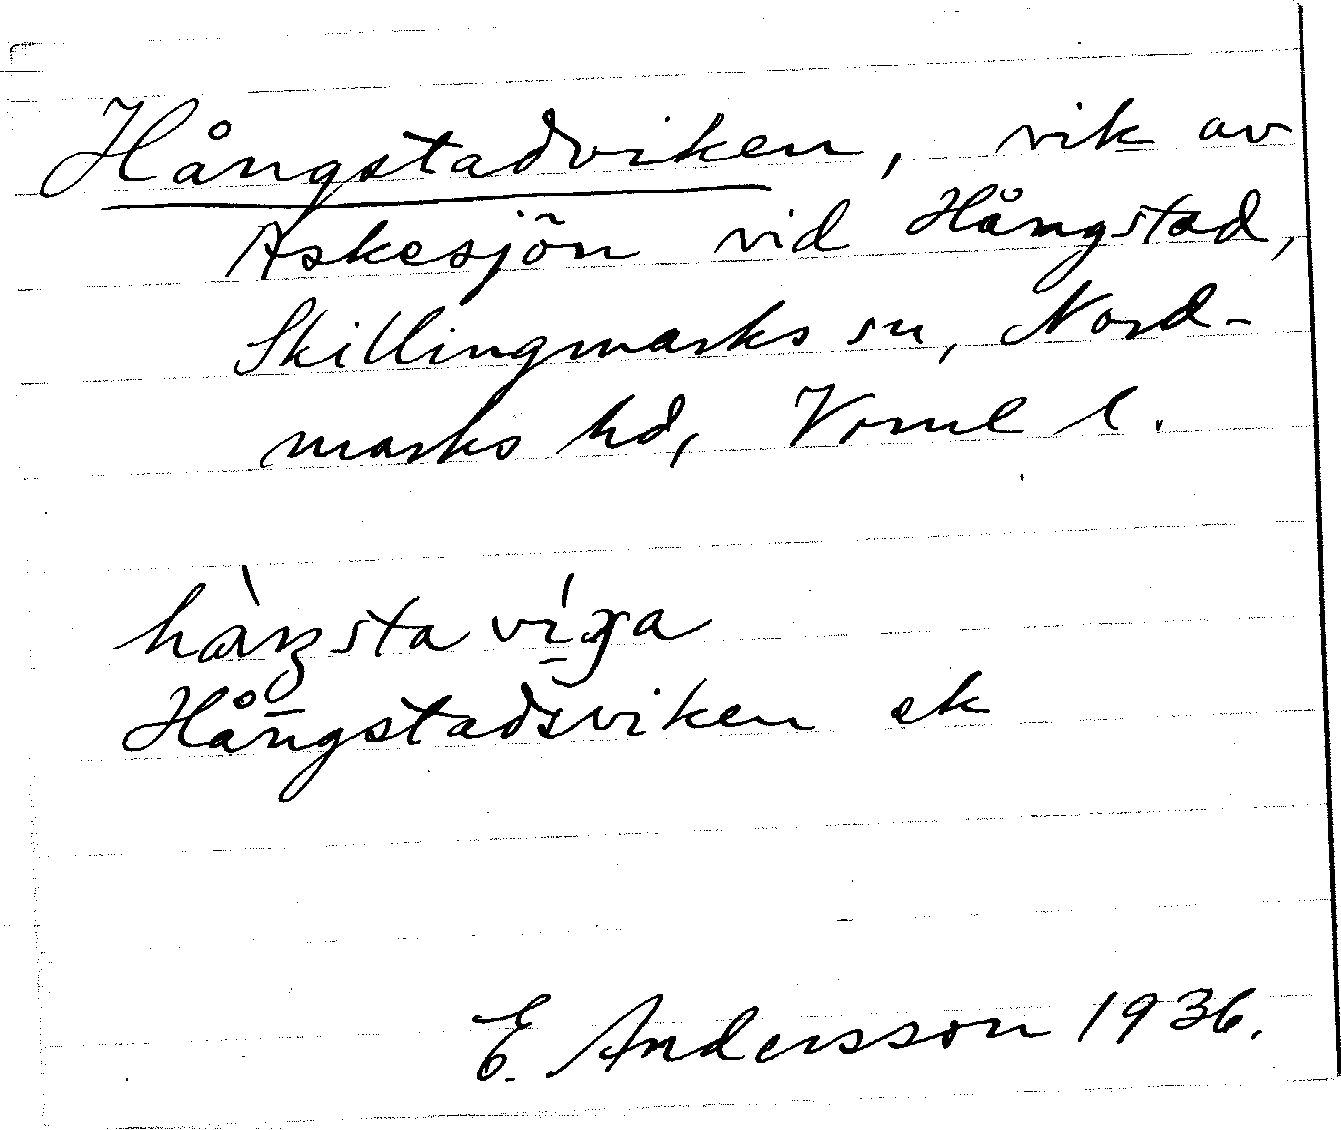 Hångstadviken, vik av
Askesjön vid Hångstad,
Skillingmarks sn, Nord-
marks hd, Vrml l.
hàŋsta víʒa
Hångstadsviken ek
E. Andersson 1936.